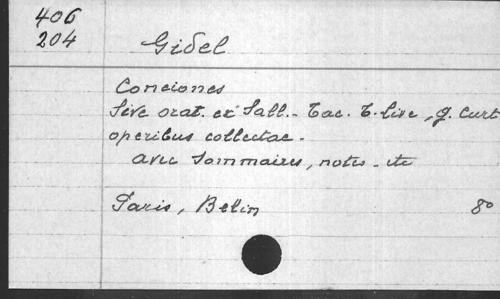 406
204
Gidel
Conciones
Sive orat. ex Sall. - Tac. T. Live, q. Curt
operibus collectae -
avec Sommaires, notes - etc
Paris, Belin 8º